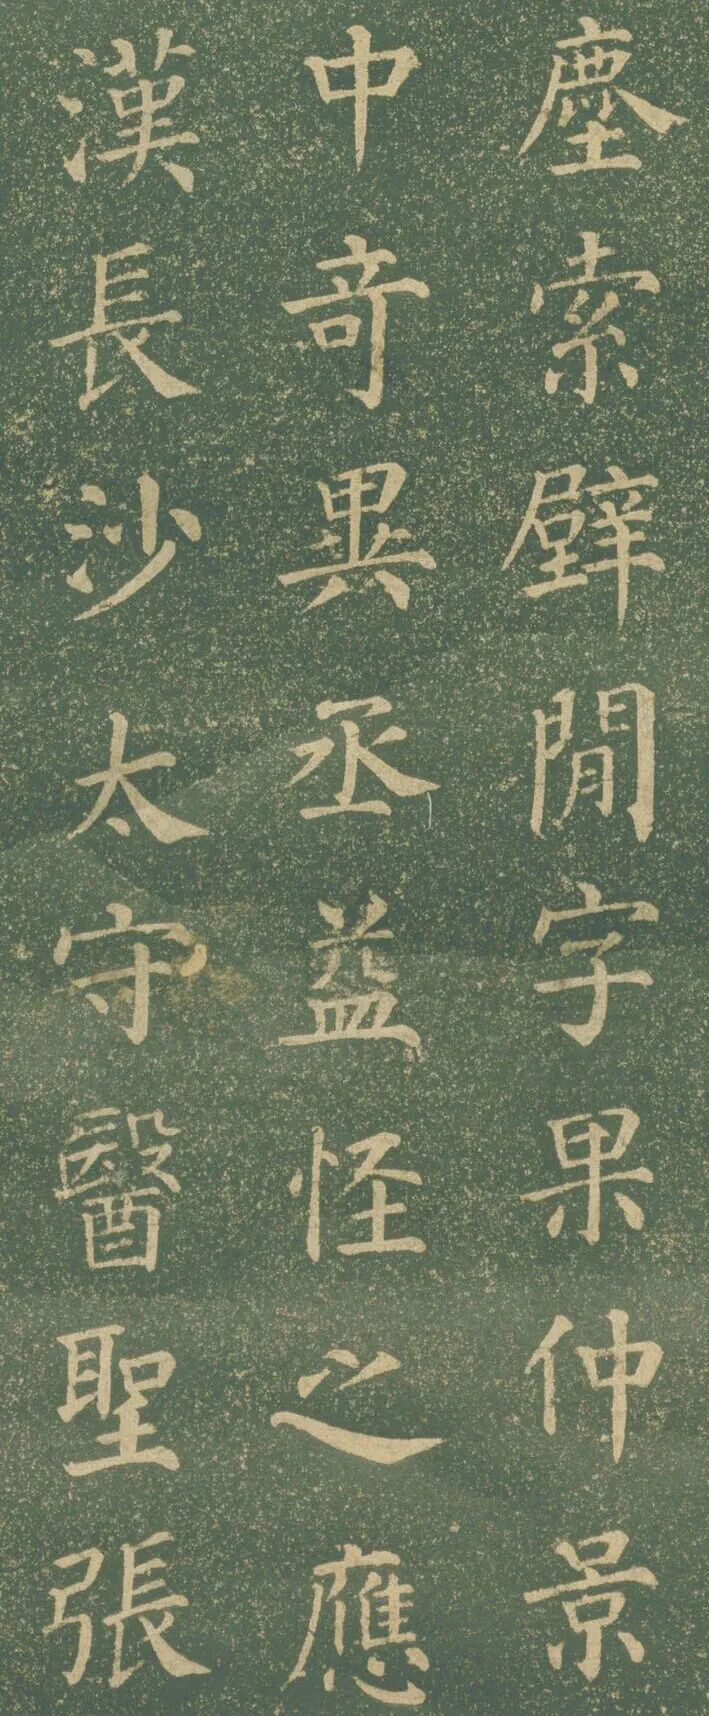 塵索壁間字果仲景
中奇異丞益怪之應
漢長沙太守醫聖張